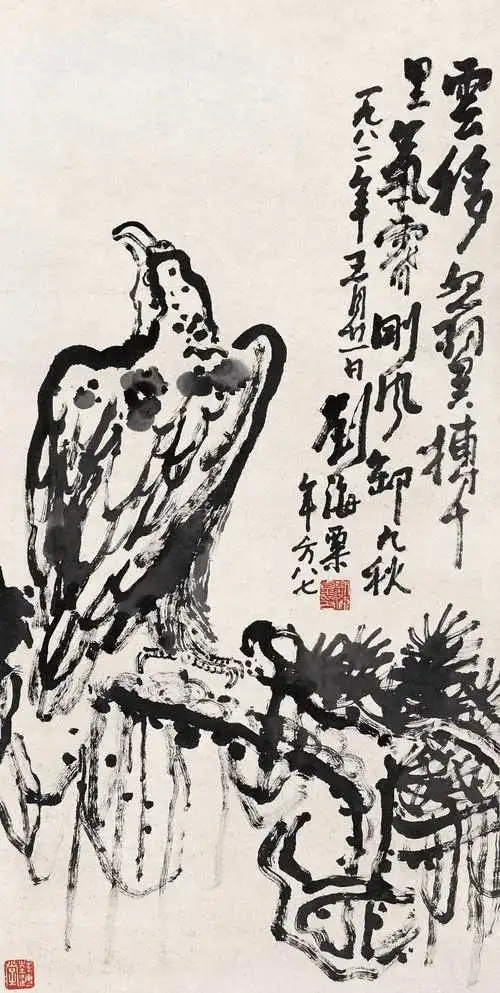 雲移怒翼摶千
里氣霽剛風御九秋
一九八二年月廿一日劉海粟
年方八七